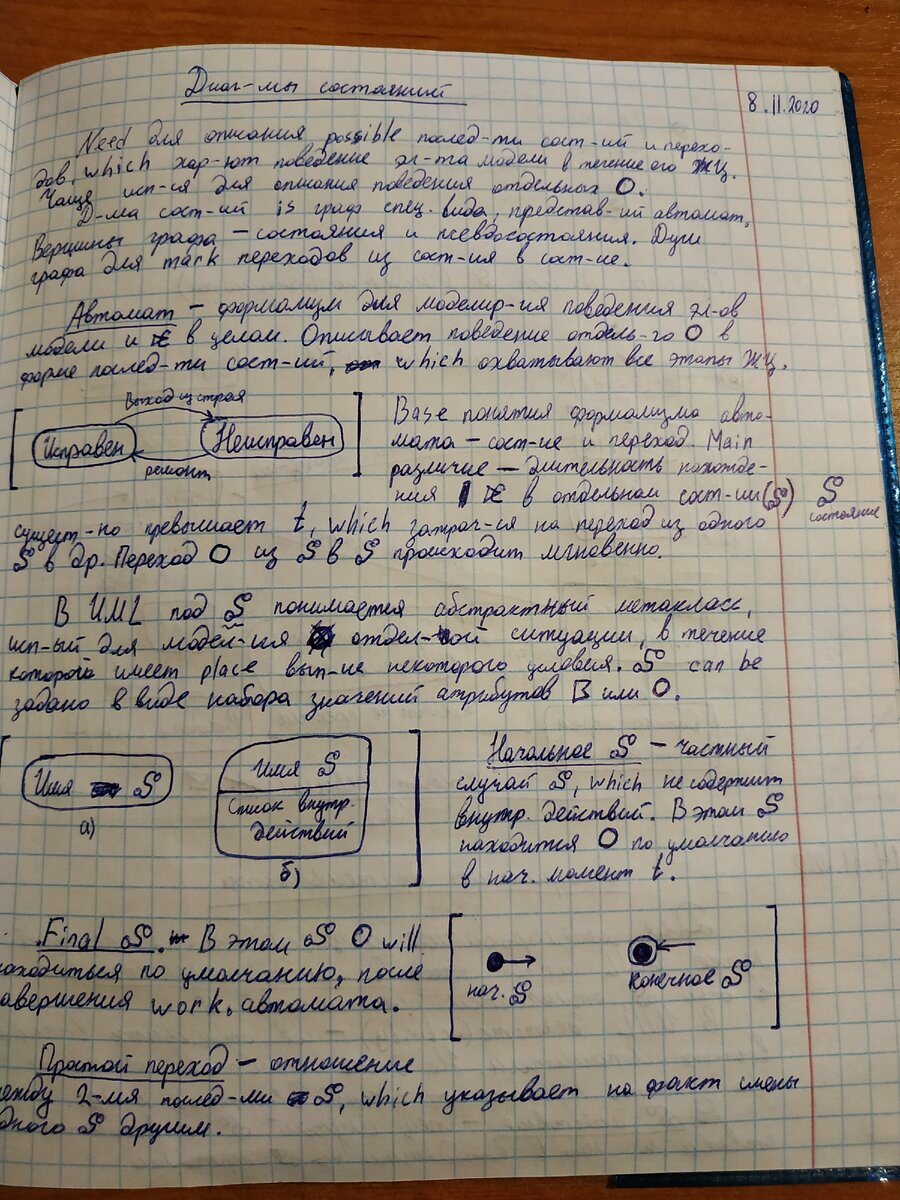 Диаг-мы состояний
8.11.2020
Need для описания possible послед-ти сост-ий и перехо-
дов, which хар-ют поведение эл-та модели в течение его ЖЦ.
Чаще исп-ся для описания поведения отдельных O.
Д-ма сост-ий is граф спец. вида, представ-ий автомат,
Вершины графа – состояния и псевдосостояния. Дуги
графа для mark переходов из сост-ия в сост-ие.
Автомат – формализм для моделир-ия поведения эл-ов
модели и в целом. Описывает поведение отдель-го O в
форме послед-ти сост-ий, which охватывают все этапы ЖЦ.
Выход из строя
Исправен
Неисправен
ремонт
Base понятия формализма авто-
мата – сост-ие и переход. Main
различие – длительность нахожде-
ния в отдельном сост-ии (S) S
состояние
сущест-но превышает t, which затрач-ся на переход из одного
S в др. Переход O из S в S происходит мгновенно.
В UML под S понимается абстрактный метакласс,
исп-ый для модел-ия отдел-ой ситуации, в течение
которой имеет place вып-ие некоторого условия. S can be
задано в виде набора значений атрибутов или O.
Имя S
а)
Имя S
Список внутр.
действий
б)
Начальное S – частный
случай S, which не содержит
внутр. действий. В этом S
находится O по умолчанию
в нач. момент t.
Final S. В этом S O will
находиться по умолчанию, после
завершения work. автомата.
нач. S
конечное S
Простой переход – отношение
между 2-мя послед-ми S, which указывает на факт смены
одного S другим.